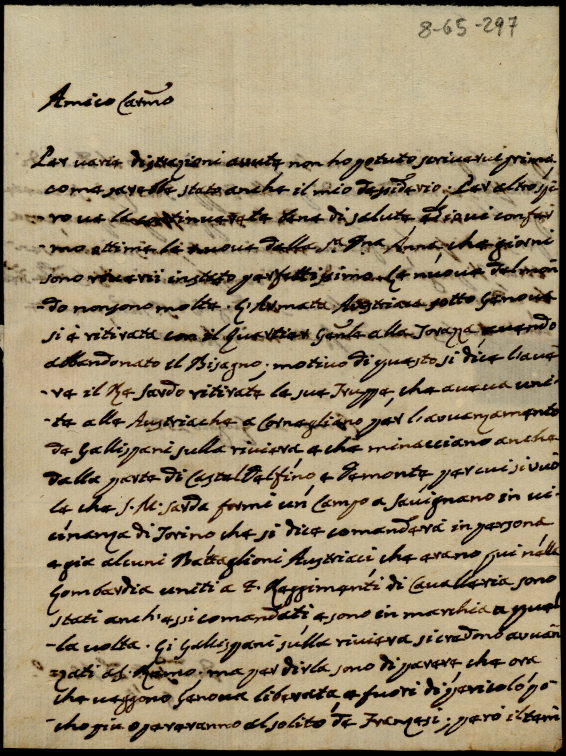 8-65-297
Amico Carmo
Per varie distrazioni avute non ho potuto scrivervi prima
come sarebbe stato anche il mio desiderio. Per altro spe
-ro ve la continuerete bene di salute e di qui confer
-mo ottime le nuove della Sra. Dna. Anna, che giorni
sono riverii in stato perfettissimo. Le nuove del mon
-do non sono molte. L'Armata Austriaca sotto Genova
si è ritirata con il Quartier Gnle alla Torazza avendo
abbandonato il Bisagno; motivo di questo si dice l'ave
-re il Re Sardo ritirate le sue Truppe, che aveva uni
-te alle Austriache a Cornegliano per l'avanzamento
de Gallispani sulla riviera e che minacciano anche
dalla parte di Castel Delfino e Demonte per cui si vuo
le che S. M. Sarda formi un Campo a Savignano in vi
cinanza di Torino che si dice comanderà in persona
e gia alcuni Battaglioni Austriaci che erano qui nella
Lombardia uniti a 2. Reggimenti di Cavalleria sono
stati anch'essi comandati e sono in marchia a quel
-la volta. Gi Gallispani sulla riviera si credono avvan
-zati a S. Remo. ma per dirla sono di parere che ora
che veggono Genova liberata e fuori di pericolo po
-cho piu opereranno al solito de Francesi; però il tem